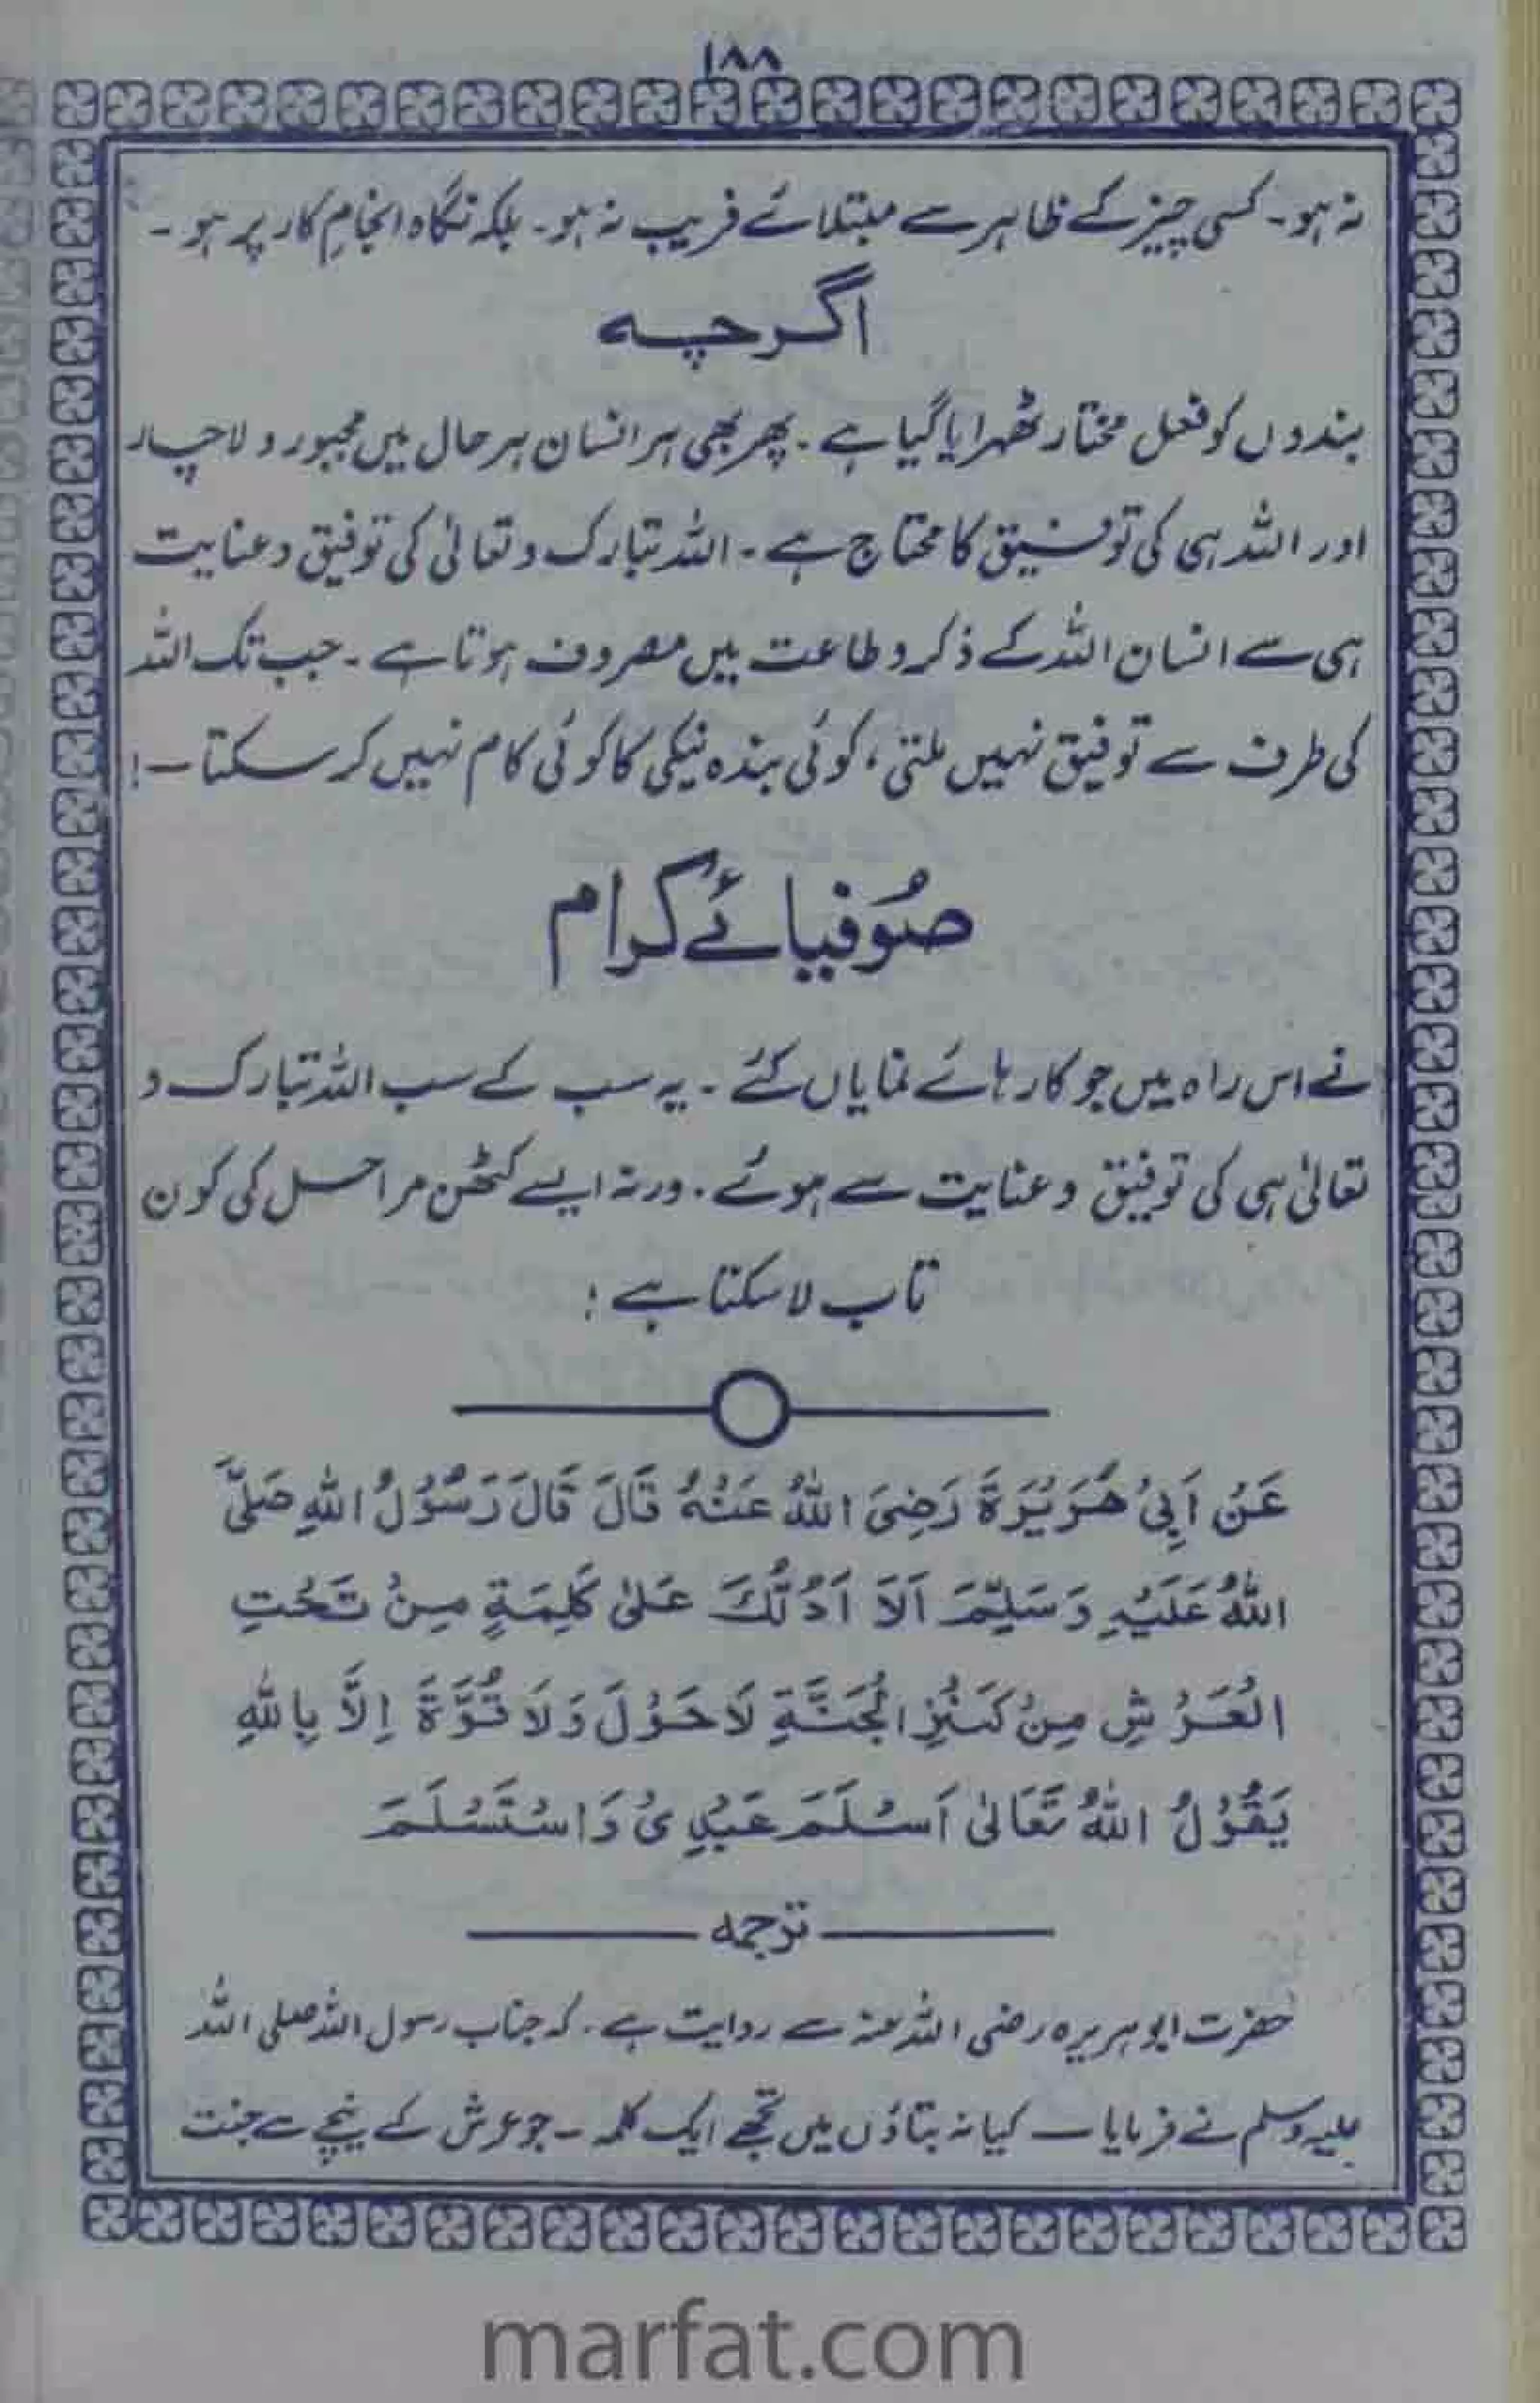 ۱۸۸
نہ ہو۔ کسی چیز کے ظاہر سے مبتلائے فریب نہ ہو۔ بلکہ نگاہ انجامِ کار پر ہو۔
اگرچہ
بندوں کو فعل مختار ٹھہرایا گیا ہے۔ پھر بھی ہر انسان ہر حال میں مجبور و لاچار
اور اللہ ہی کی توفیق کا محتاج ہے۔ اللہ تبارک و تعالیٰ کی توفیق و عنایت
ہی سے انسان اللہ کے ذکر و طاعت میں مصروف ہوتا ہے۔ جب تک اللہ
کی طرف سے توفیق نہیں ملتی، کوئی بندہ نیکی کا کوئی کام نہیں کر سکتا۔!
صُوفیائے کرام
نے اس راہ میں جو کارہائے نمایاں کئے۔ یہ سب کے سب اللہ تبارک و
تعالیٰ ہی کی توفیق و عنایت سے ہوئے۔ ورنہ ایسے کٹھن مراحل کی کون
تاب لا سکتا ہے؛
عَنْ اَبِیْ هُرَیْرَةَ رَضِیَ اللهُ عَنْهُ قَالَ قَالَ رَسُوْلُ اللهِ صَلَّی
اللهُ عَلَیْهِ وَسَلَّمَ اَلَا اَدُلُّكَ عَلیٰ كَلِمَةٍ مِنْ تَحْتِ
الْعَرْشِ مِنْ كَنْزِ الْجَنَّةِ لَا حَوْلَ وَلَا قُوَّةَ اِلَّا بِاللهِ
یَقُوْلُ اللهُ تَعَالیٰ اَسْلَمَ عَبْدِیْ وَاسْتَسْلَمَ
ترجمہ
حضرت ابو ہریرہ رضی اللہ عنہ سے روایت ہے۔ کہ جناب رسول اللہ صلی اللہ
علیہ وسلم نے فرمایا — کیا نہ بتاؤں میں تجھے ایک کلمہ۔ جو عرش کے نیچے سے جنت
marfat.com